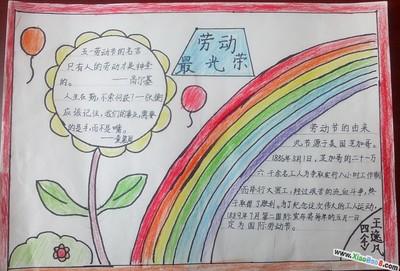 劳动
最光荣
五一劳动节的名言
只有人的劳动才是神圣
的。
——高尔基
人生在勤，不索何获？——张衡
应该记住，我们的事业，需要
的是手，而不是嘴。
劳动节的由来
此节源于美国芝加哥。
1886年5月1日，芝加哥的二十一万
六千余名工人为争取实行八小时工作制
而举行大罢工，经过艰苦的流血斗争，终
于取得了胜利。为了纪念这次伟大的工人运动，
1889年7月第二国际宣布将每年的五月一日
定为国际劳动节。
四(4)
王逸凡
www.XiaoBao8.com